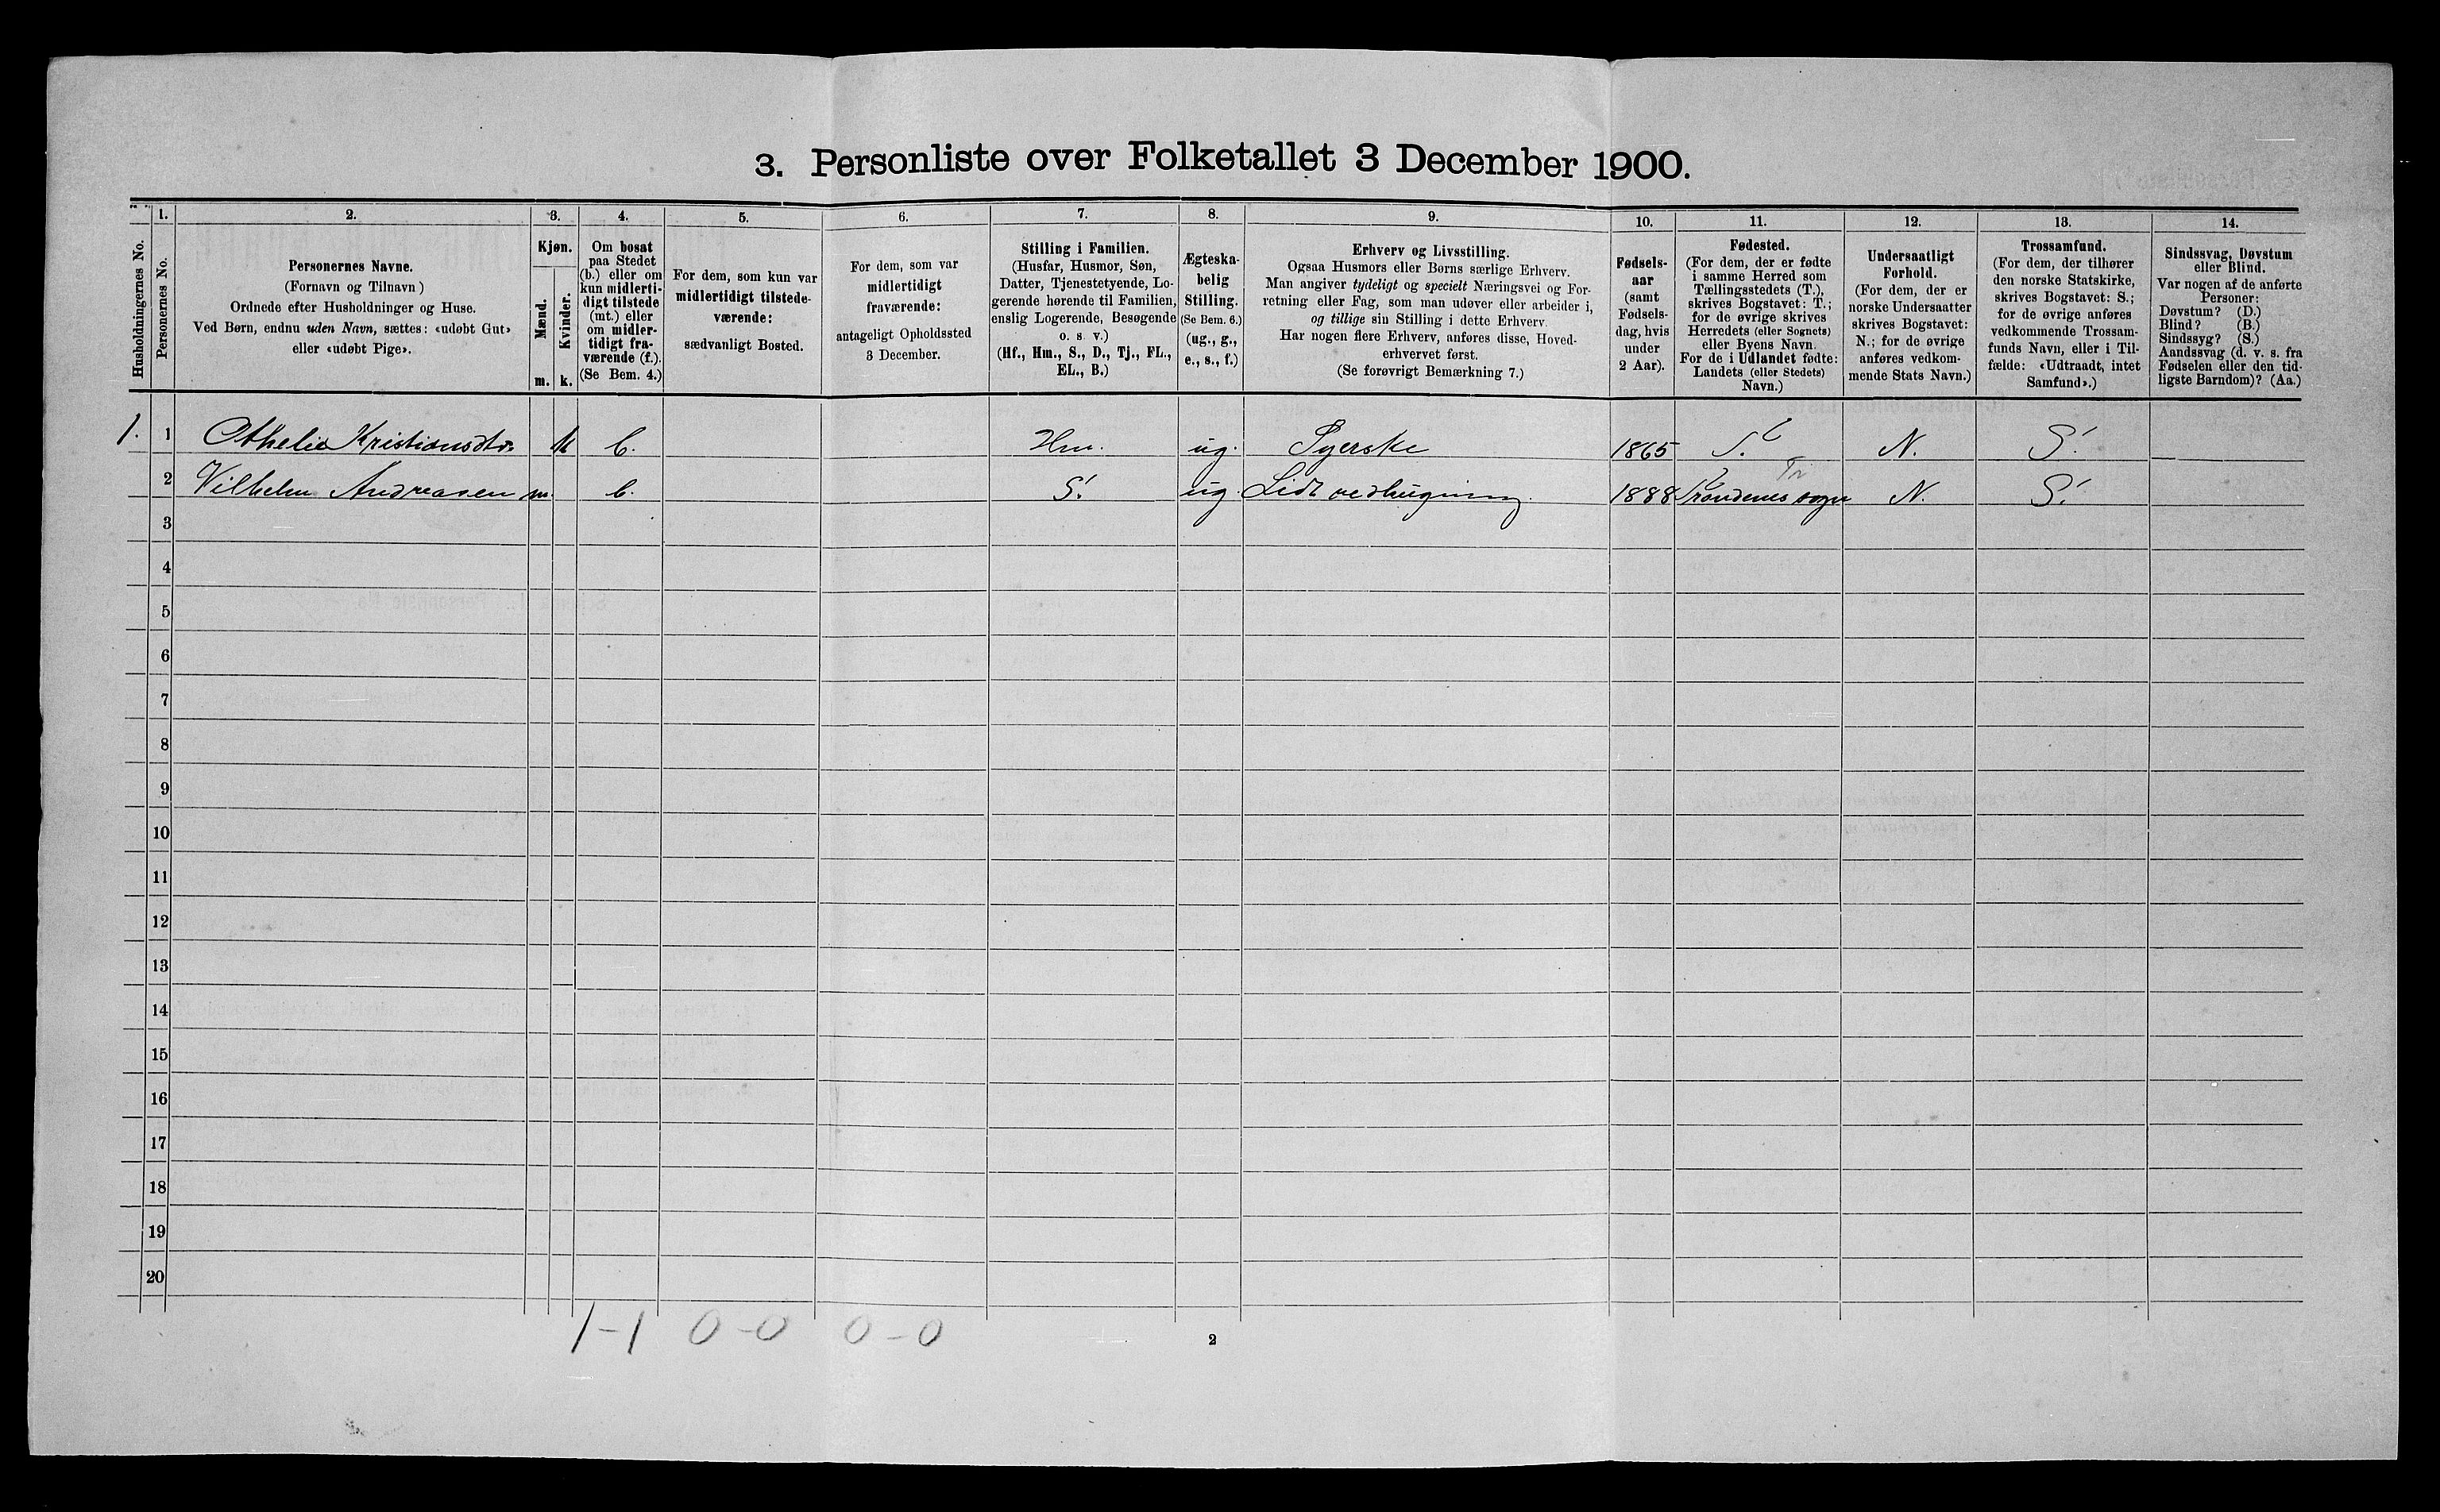 3. Personliste over Folketallet 3 December 1900.
1. 2. 3. 4. 5. 6. 7. 8. 9. 10. 11. 12. 13. 14.
Husholdningernes No.
Personernes No.
Personernes Navne.
(Fornavn og Tilnavn)
Ordnede efter Husholdninger og Huse.
Ved Børn, endnu uden Navn, sættes: «udøbt Gut»
eller «udøbt Pige».
Kjøn.
Mænd.
Kvinder.
m. k.
Om bosat
paa Stedet
(b.) eller om
kun midlerti-
digt tilstede
(mt.) eller
om midler-
tidigt fra-
værende (f.).
(Se Bem. 4.)
For dem, som kun var
midlertidigt tilstede-
værende:
sædvanligt Bosted.
For dem, som var
midlertidigt
fraværende:
antageligt Opholdssted
3 December.
Stilling i Familien.
(Husfar, Husmor, Søn,
Datter, Tjenestetyende, Lo-
gerende hørende til Familien,
enslig Logerende, Besøgende
o. s. v.)
(Hf., Hm., S., D., Tj., FL.,
EL., B.)
Ægteska-
belig
Stilling.
(Se Bem. 6.)
(ug., g.,
e., s., f.)
Erhverv og Livsstilling.
Ogsaa Husmors eller Børns særlige Erhverv.
Man angiver tydeligt og specielt Næringsvei og For-
retning eller Fag, som man udøver eller arbeider i,
og tillige sin Stilling i dette Erhverv.
Har nogen flere Erhverv, anføres disse, Hoved-
erhvervet først.
(Se forøvrigt Bemærkning 7.)
Fødsels-
aar
(samt
Fødsels-
dag, hvis
under
2 Aar).
Fødested.
(For dem, der er fødte
i samme Herred som
Tællingsstedets (T.),
skrives Bogstavet: T.;
for de øvrige skrives
Herredets (eller Sognets)
eller Byens Navn.
For de i Udlandet fødte:
Landets (eller Stedets)
Navn.)
Undersaatligt
Forhold.
(For dem, der er
norske Undersaatter
skrives Bogstavet:
N.; for de øvrige
anføres vedkom-
mende Stats Navn.)
Trossamfund.
(For dem, der tilhører
den norske Statskirke,
skrives Bogstavet: S.;
for de øvrige anføres
vedkommende Trossam-
funds Navn, eller i Til-
fælde: «Udtraadt, intet
Samfund».)
Sindssvag, Døvstum
eller Blind.
Var nogen af de anførte
Personer:
Døvstum? (D.)
Blind? (B.)
Sindssyg? (S.)
Aandssvag (d. v. s. fra
Fødselen eller den tid-
ligste Barndom)? (Aa.)
1. 1 Othelia Kristiansdtr. k b. Hm. ug. Syerske 1865 N. S.
Tr
2 Vilhelm Andreasen m. b. S. ug. Lidt vedhugning. 1888 Trondenes sogn N. S.
3
4
5
6
7
8
9
10
11
12
13
14
15
16
17
18
19
20
1-1 0-0 0-0
2